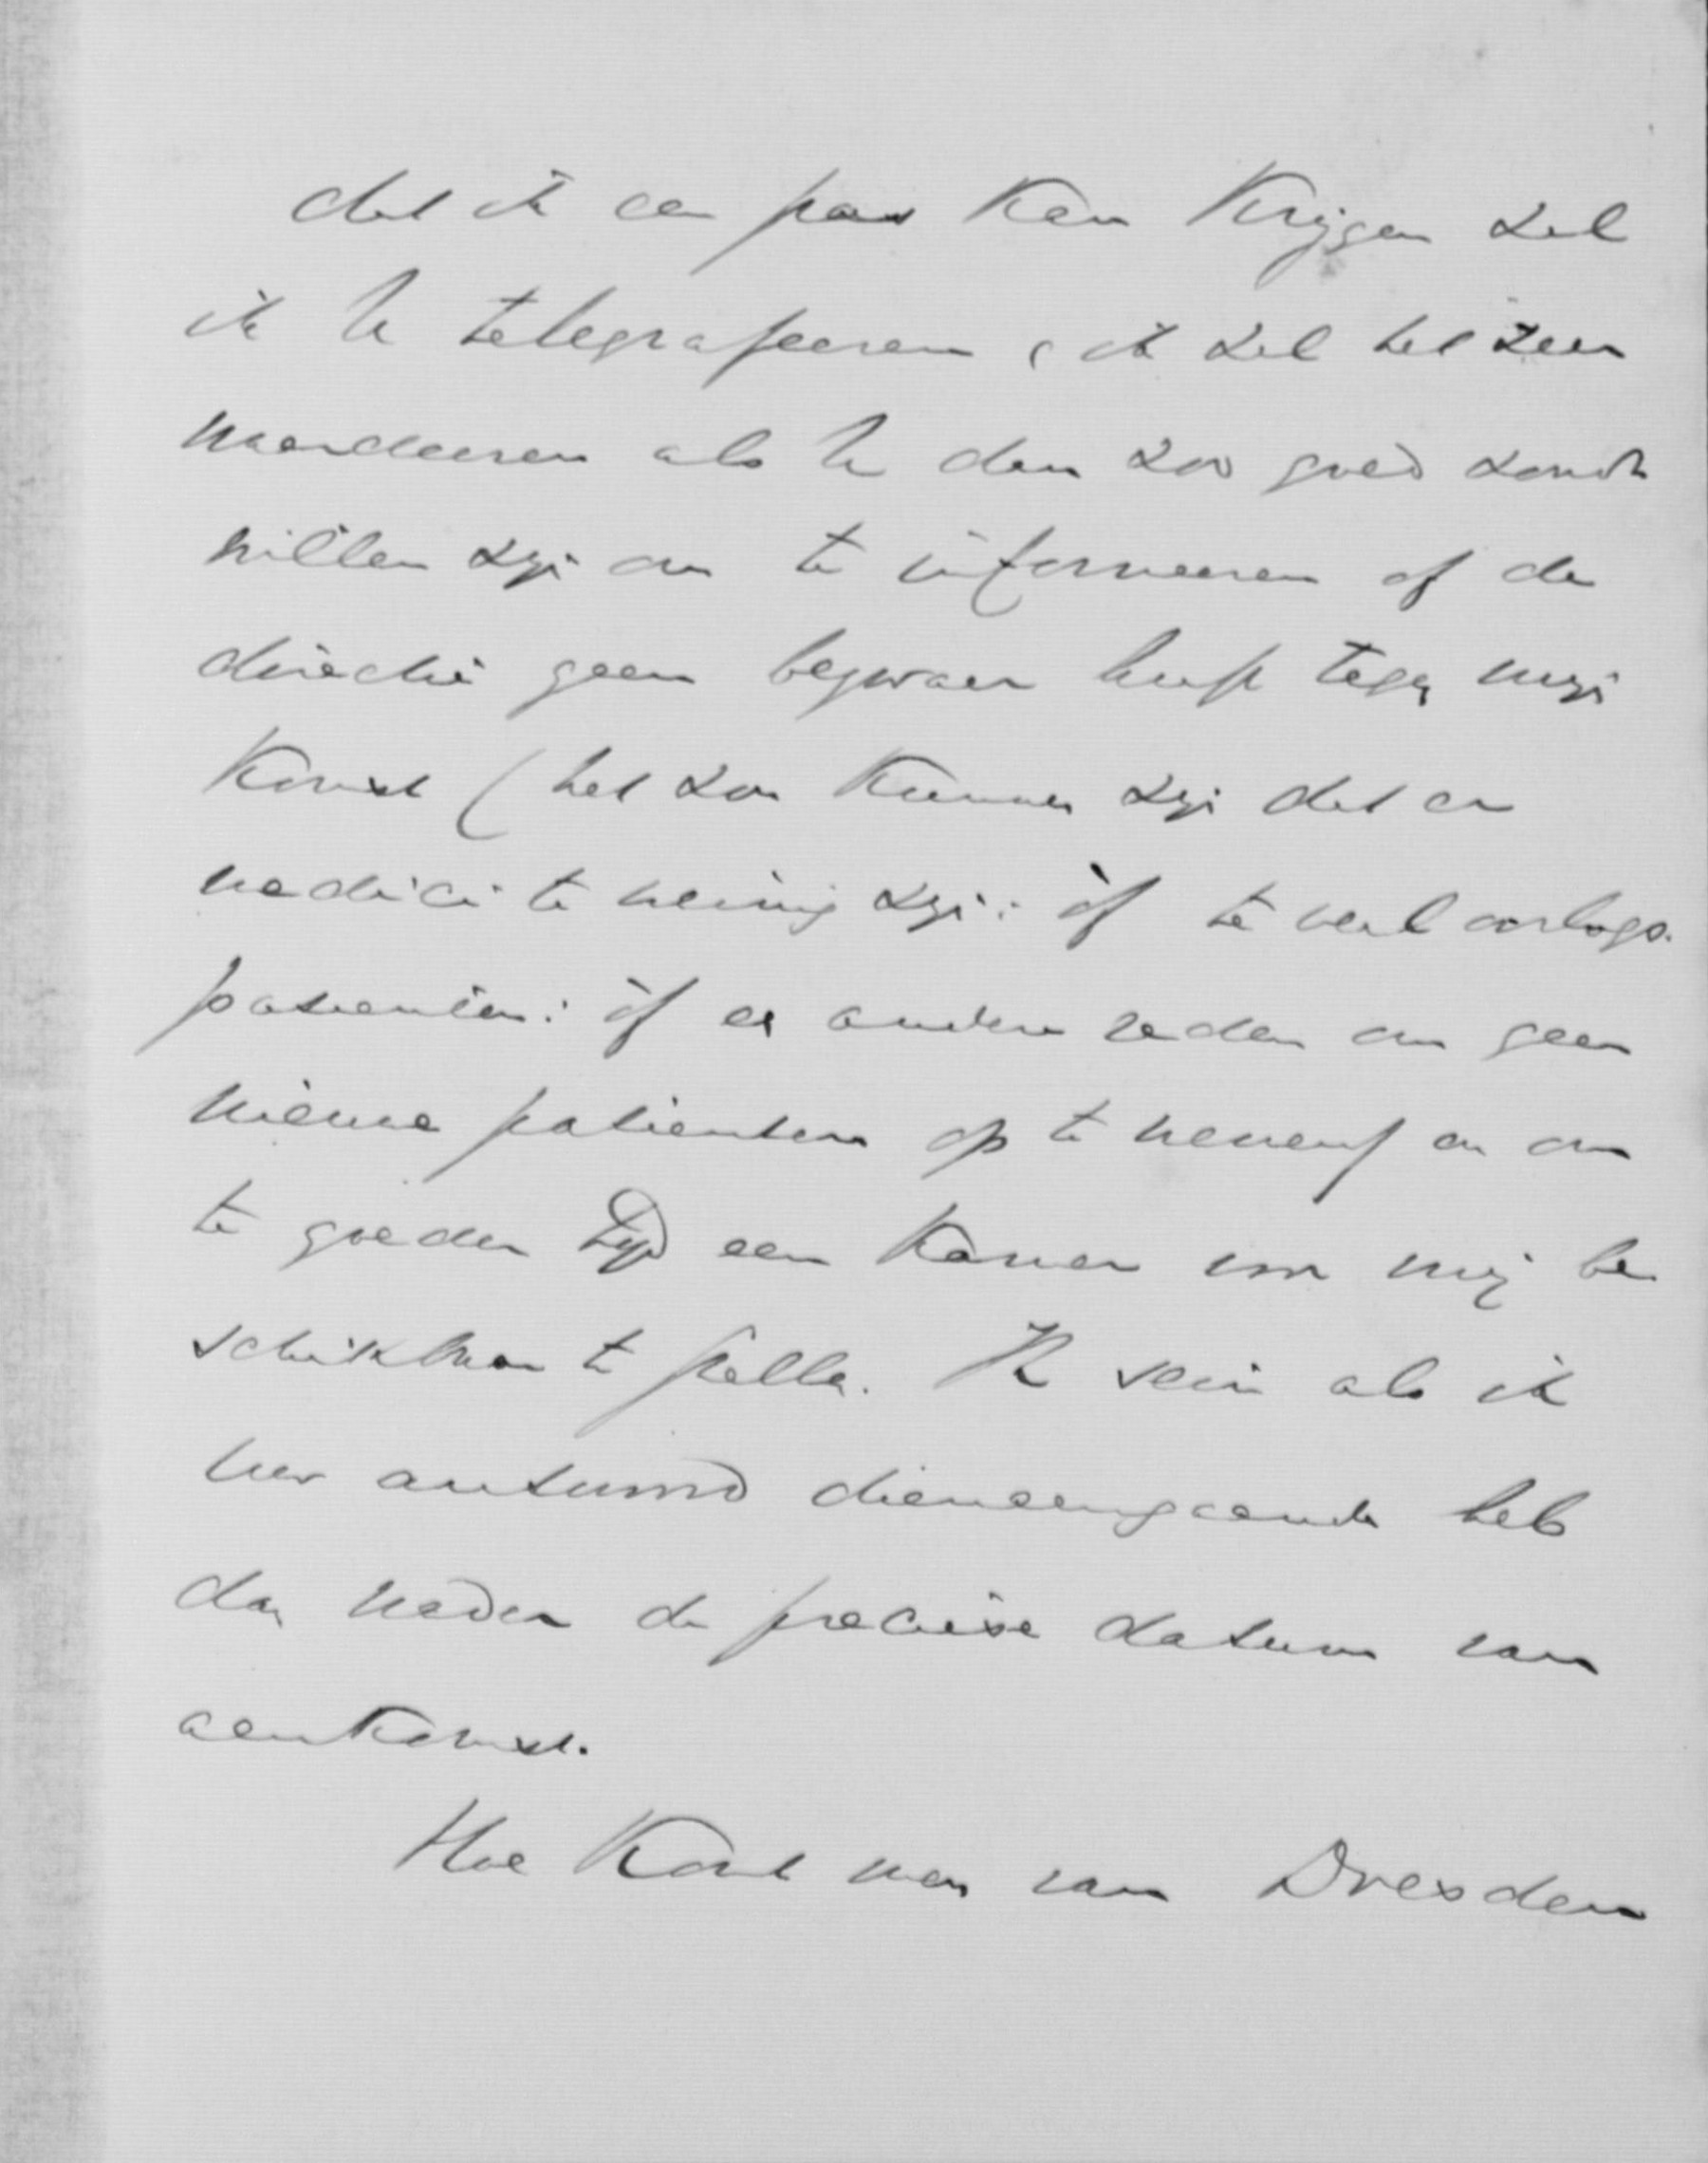 dat ik een pas kan krijgen zal
ik U telegrafeeren, ik zal het zeer
waardeeren als U dan zoo goed zoudt
willen zijn om te informeeren of de
directie geen bezwaar heeft tegen mijn
komst (het zou kunnen zijn dat er
medici te weinig zijn: òf te veel oorlogs-
patienten: òf er andere reden om geen
nieuwe patienten op te nemen) en om
te goeder tijd een kamer voor mij be-
schikbaar te stellen. Ik sein als ik
hier antwoord dienaangaande heb
dan nader de preciese datum van
aankomst.
Hoe komt men van Dresden